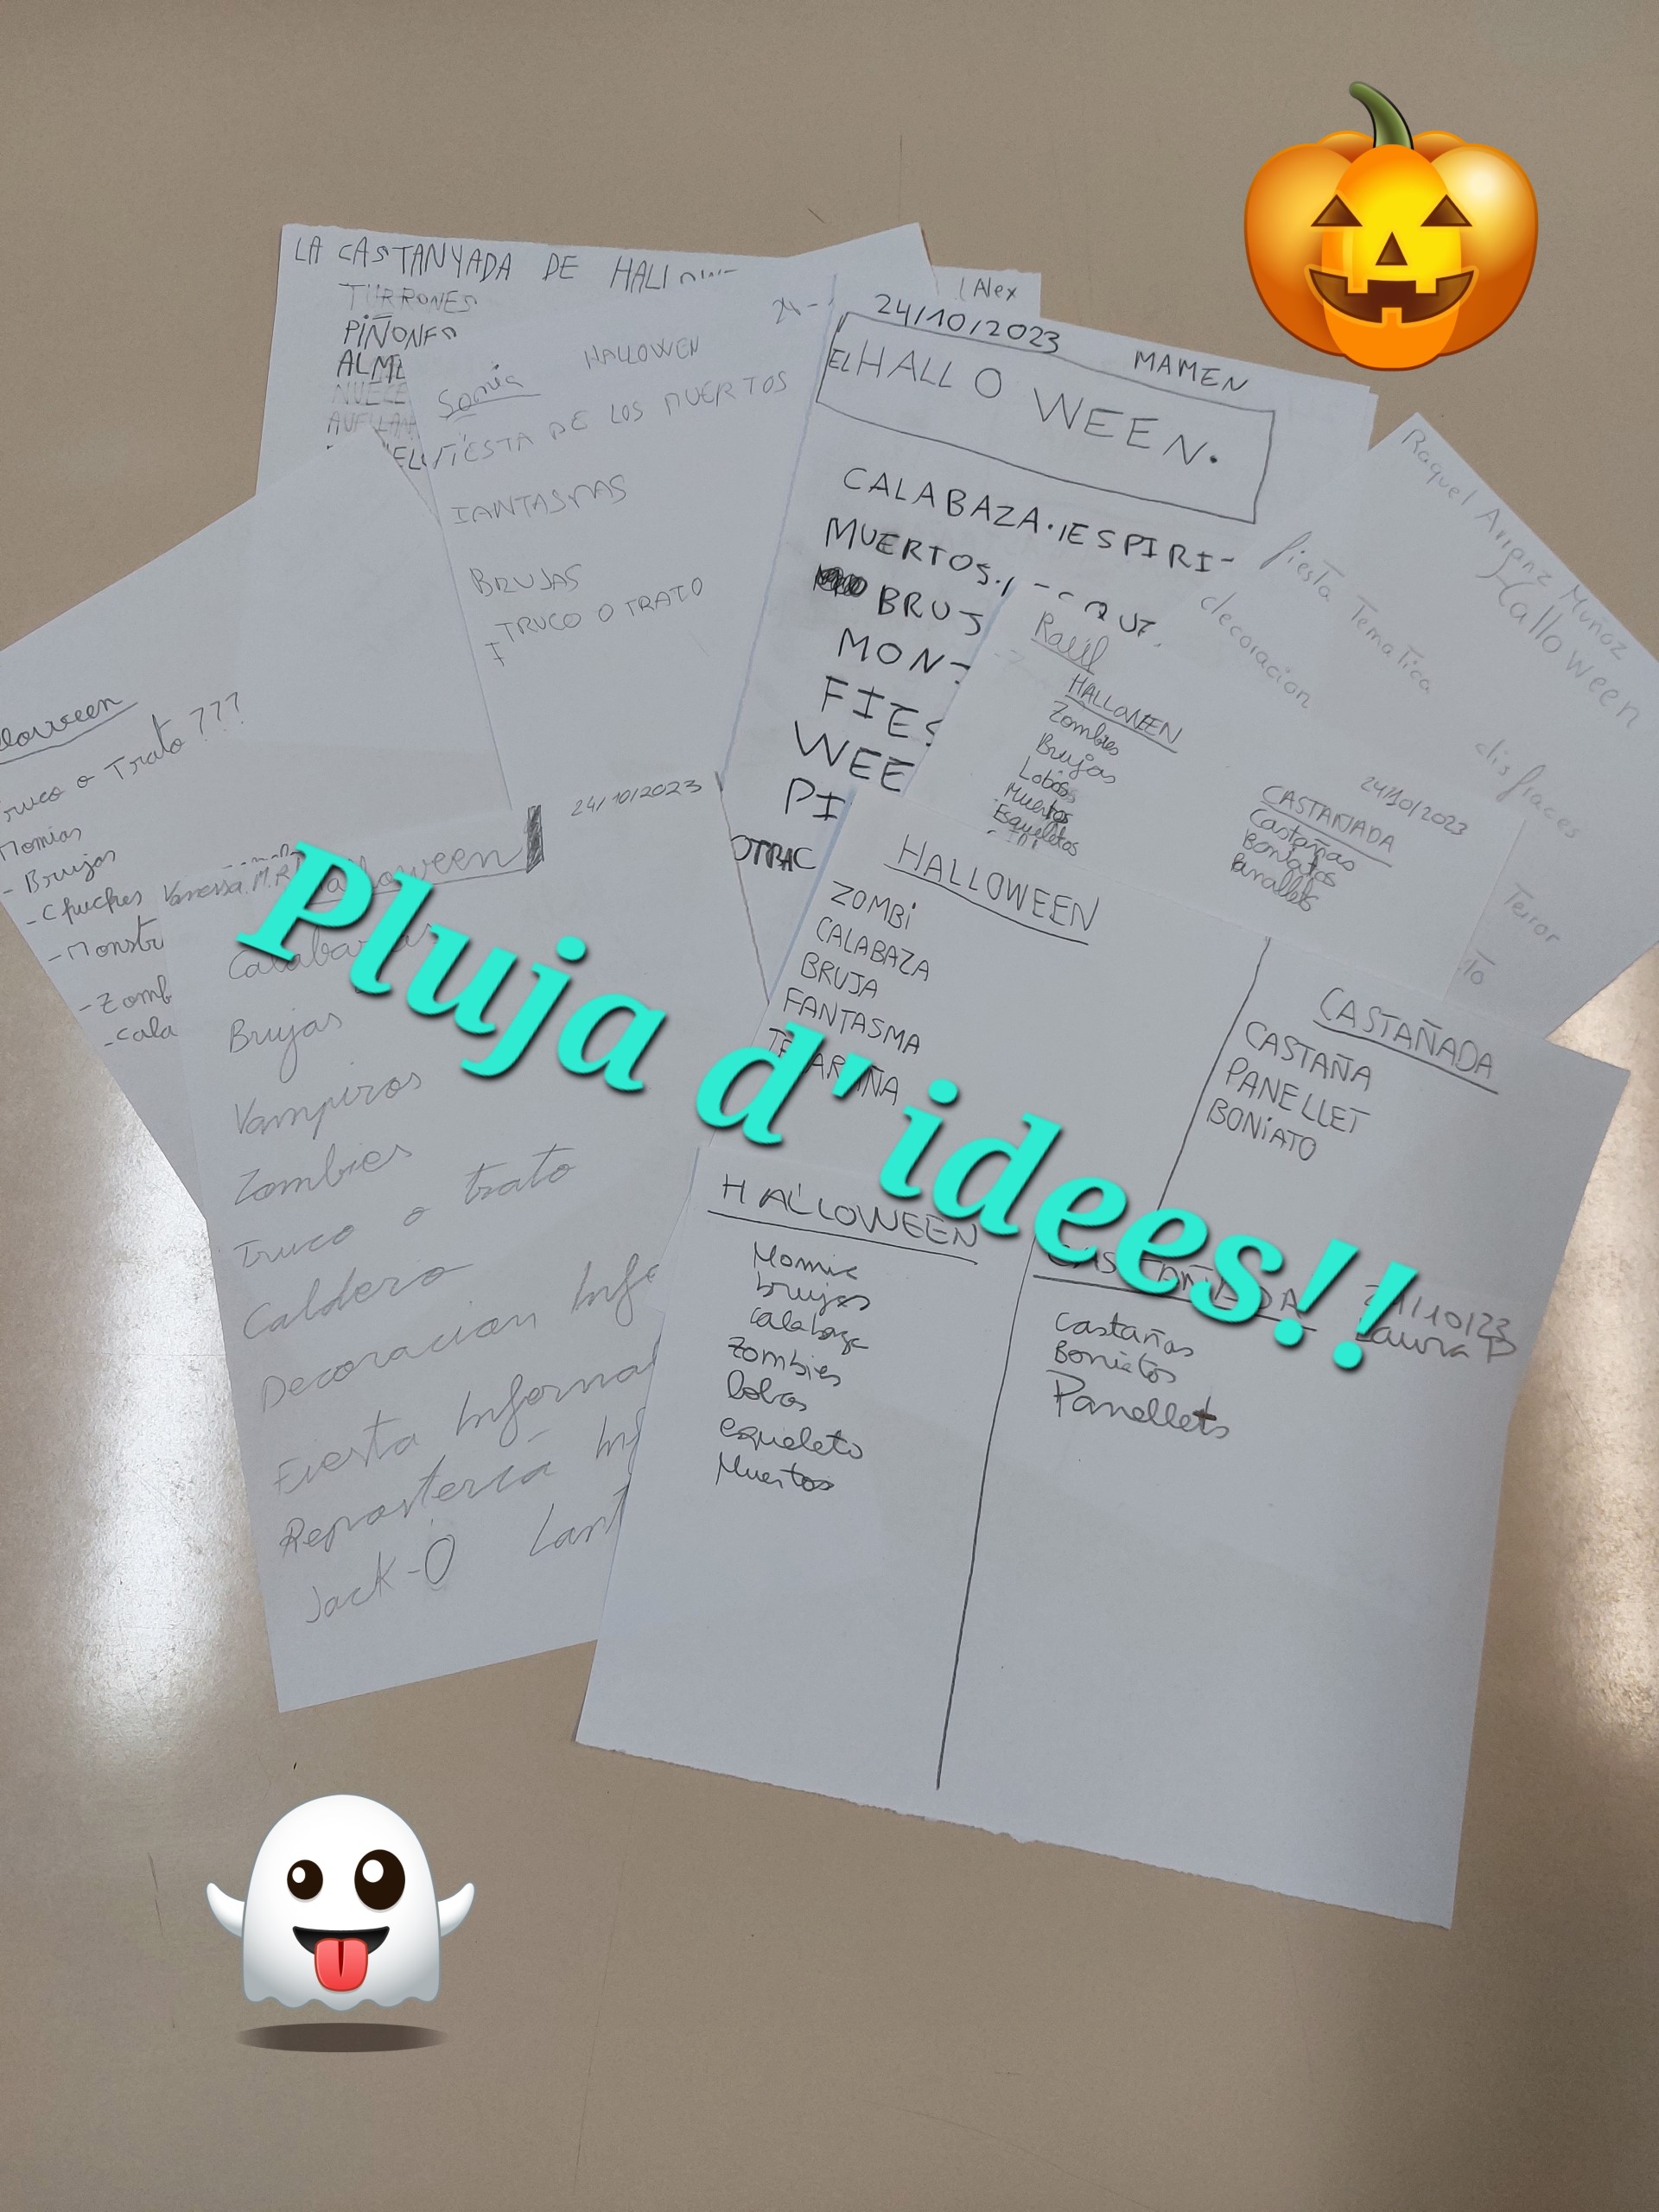 LA CASTANYADA DE
TURRONES
PIÑONES
Alex
Sonia
HALLOWEN
FIESTA DE LOS MUERTOS
FANTASMAS
BRUJAS
TRUCO O TRATO
24/10/2023
MAMEN
EL HALLOWEEN.
CALABAZA. ESPIRI-
MUERTOS.
BRUJ
MON
FIES
WEE
PI
Raquel Arranz Muñoz
Halloween
fiesta Tematica
decoracion
disfraces
Terror
Raúl
HALLOWEEN
Zombies
Brujas
Lobos
Muertos
Esqueletos
24/10/2023
CASTAÑADA
Castañas
Boniatos
Panallets
loween
Truco o Trato ???
Momias
- Brujas
- Chuches
- Monstr
- Zomb
- Cala
24/10/2023
Vanessa. M. R
Halloween
Calabazas
Brujas
Vampiros
Zombies
Truco o trato
Caldero
Decoracion Infe
Fiesta Infernal
Reposteria Inf
Jack-O Lant
HALLOWEEN
ZOMBi
CALABAZA
BRUJA
FANTASMA
TELARAÑA
CASTAÑADA
CASTAÑA
PANELLET
BONiATO
HALLOWEEN
Momia
brujas
Calabaza
Zombies
lobos
esqueleto
Muertos
CASTAÑADA
Castañas
Boniatos
Panellets
24/10/23
Laura B
Pluja d'idees!!